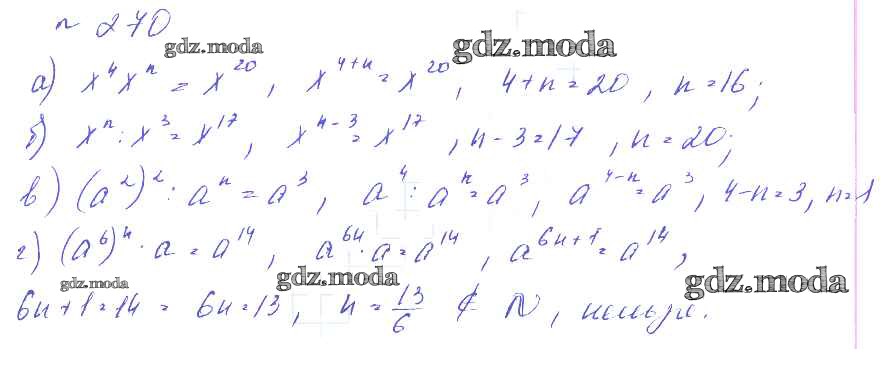 № 270
gdz.moda gdz.moda
а) x⁴xⁿ = x²⁰, x⁴⁺ⁿ = x²⁰, 4+n=20, n=16;
б) xⁿ : x³ = x¹⁷, xⁿ⁻³ = x¹⁷, n-3=17, n=20;
в) (a²)² : aⁿ = a³, a⁴ : aⁿ = a³, a⁴⁻ⁿ = a³, 4-n=3, n=1
г) (a⁶)ⁿ · a = a¹⁴, a⁶ⁿ · a = a¹⁴, a⁶ⁿ⁺¹ = a¹⁴,
gdz.moda gdz.moda gdz.moda
6n+1=14 = 6n=13, n = 13/6 ∉ N, нельзя.